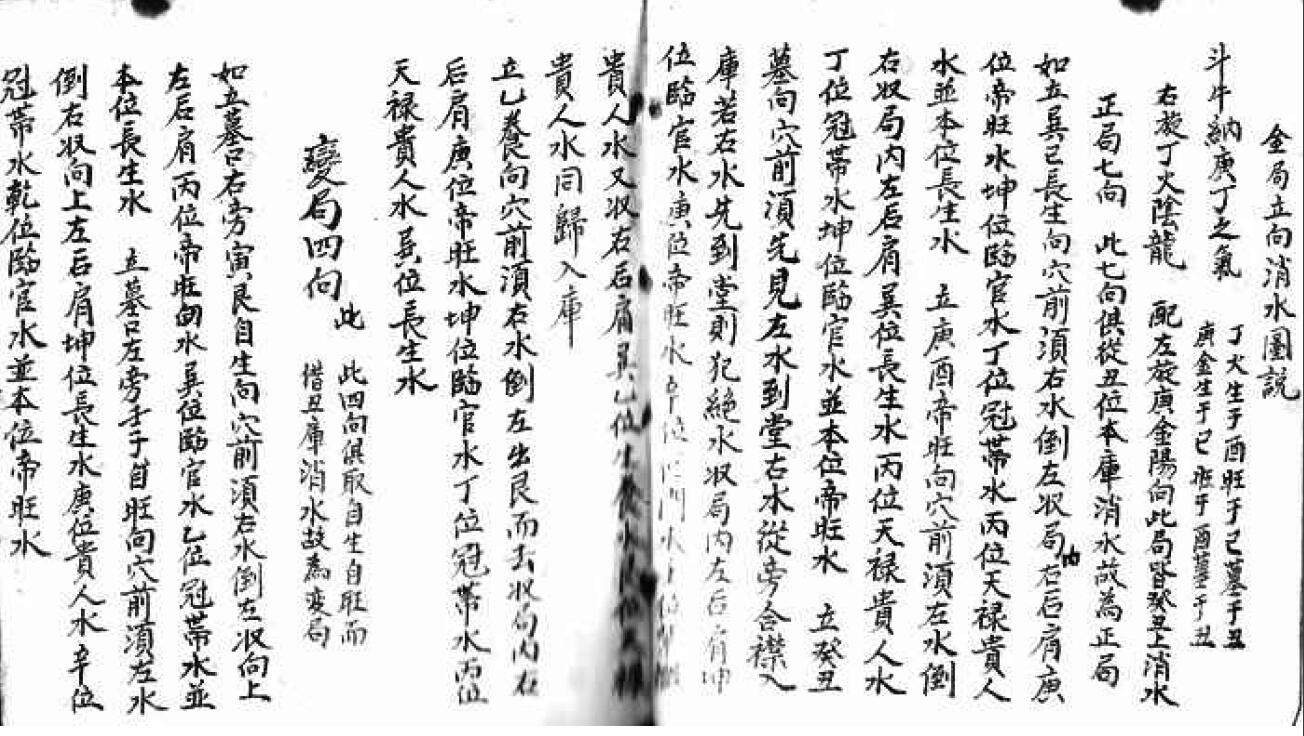 金局立向消水圖説
斗牛納庚丁之氣 丁火生于酉旺于巳墓于丑
庚金生于巳旺于酉墓于丑
右旋丁火陰龍 配左旋庚金陽向此局皆癸丑上消水
正局七向 此七向俱從丑位本庫消水故為正局
如立巽巳長生向穴前須右水倒左収局內右后肩庚
位帝旺水坤位臨官水丁位冠帶水丙位天禄貴人
水並本位長生水 立庚酉帝旺向穴前須左水倒
右収局内左后肩巽位長生水丙位天禄貴人水
丁位冠帶水坤位臨官水並本位帝旺水 立癸丑
墓向穴前須先見左水到堂右水從旁合襟入
庫若右水先到堂則犯絕水収局内左后肩坤
位臨官水庚位帝旺水
貴人水又収右后肩巽乙位生養水
貴人水同歸入庫
立乙養向穴前須右水倒左出艮而去収局内右
后肩庚位帝旺水坤位臨官水丁位冠帶水丙位
天禄貴人水巽位長生水
變局四向 此 此四向俱取自生自旺而
借丑庫消水故為变局
如立墓口右旁寅艮自生向穴前須右水倒左収向上
左后肩丙位帝旺向水巽位臨官水乙位冠帶水並
本位長生水 立墓口左旁壬子自旺向穴前須左水
倒右収向上左后肩坤位長生水庚位貴人水辛位
冠帶水乾位臨官水並本位帝旺水